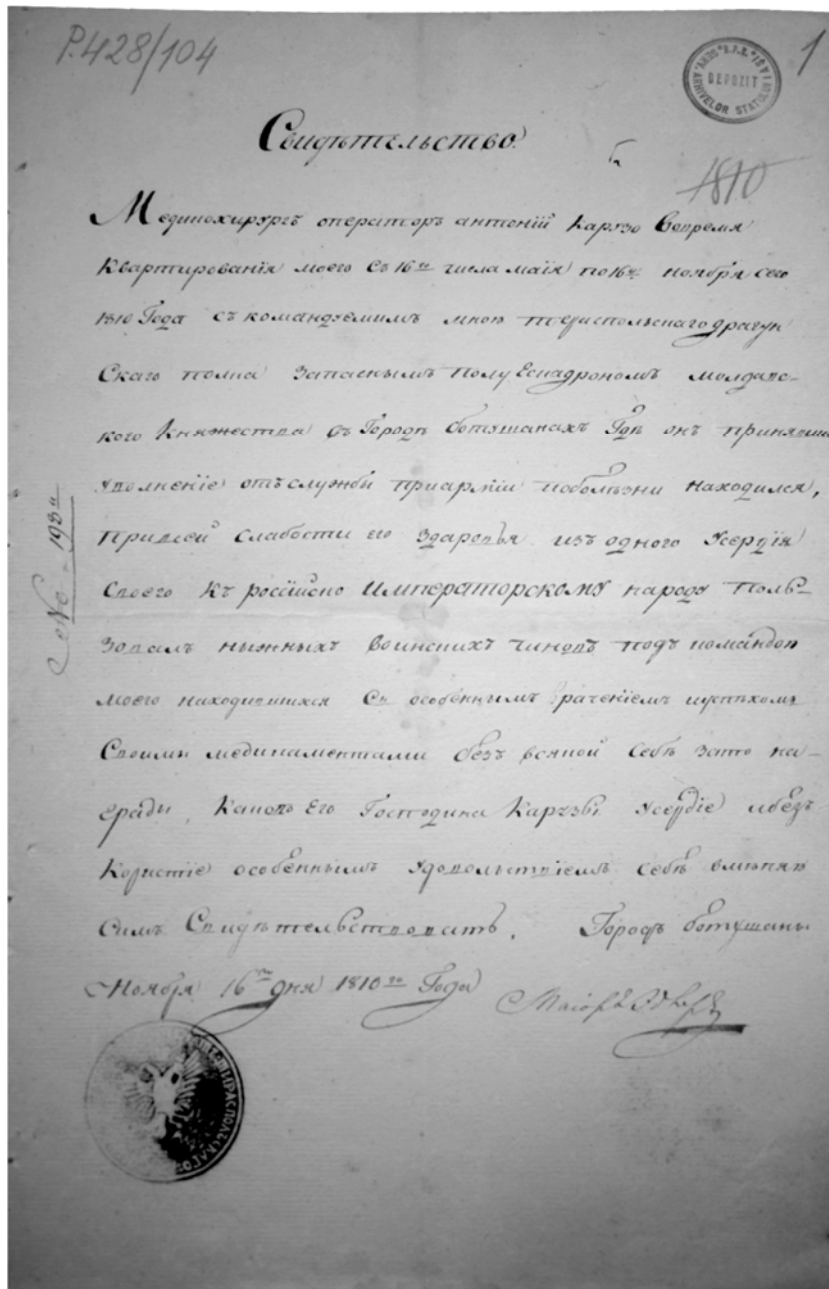 P.428/104
1
ARHIVELOR STATULUI IAȘI
DEPOZIT
Свидѣтельство.
1810
Медикохирургъ операторъ антоній Карузо Вовремя
Квартированія моего съ 16го числа маія по 16е ноября сего
1810 Года съ командуемимъ мною тираспольскаго драгун
Скаго полка запаснымъ полу Ескадрономъ молдавс-
кого Княжества въ Городѣ ботушанахъ Гдѣ онъ принявши
Уволненіе отъ службы приарміи поболѣзни находился,
привсей слабости его Здаровья изъ одного Усердія
Своего къ россійско Императорскому народу Поль-
зовалъ ныжныхъ воинскихъ чиновъ подъ командою
моего находившихся Съ особеннымъ раченіемъ
Своими медикаментами безъ всякой себѣ зато на-
гради, Каковъ Его Господина Усердіе ибезъ
Користіе особеннымъ Удовольствіемъ себѣ вмѣняя
Симъ Свидѣтельствовать. Городъ ботушаны
Ноября 16го дня 1810го Года
Маіоръ
№ 193й
ТИРАСПОЛЬСКАГО